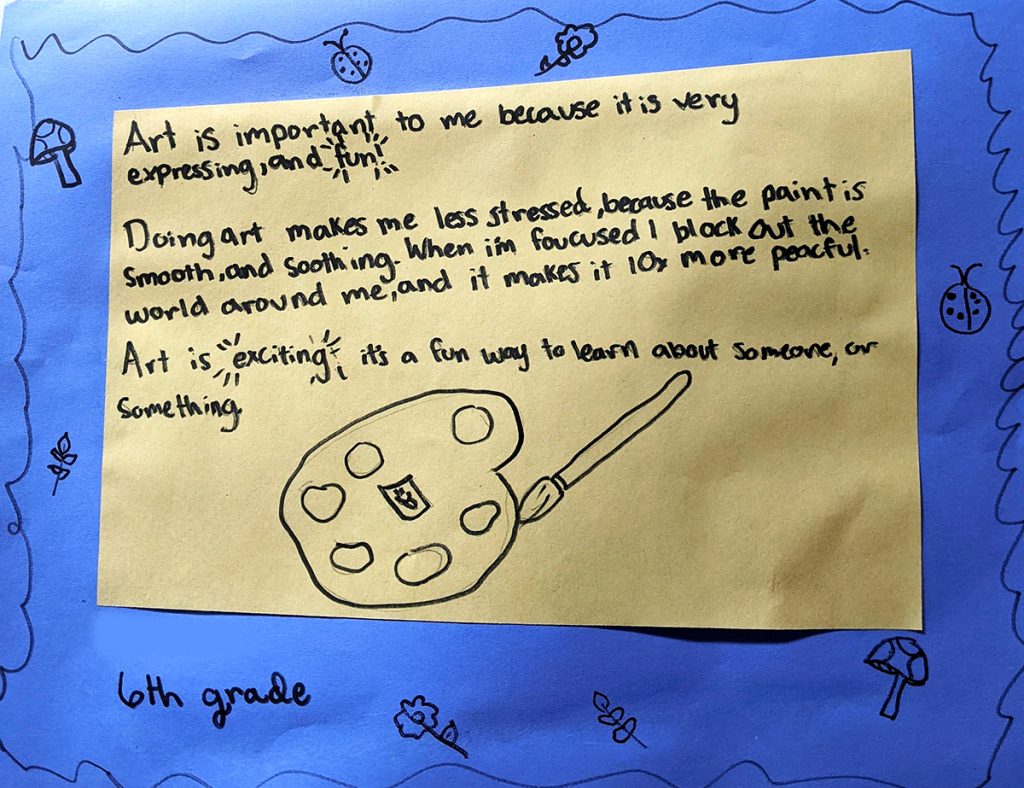 Art is important to me because it is very
expressing, and fun!
Doing art makes me less stressed, because the paint is
smooth, and soothing. When i'm foucused I block out the
world around me, and it makes it 10x more peacful.
Art is exciting, it's a fun way to learn about someone, or
something.
6th grade